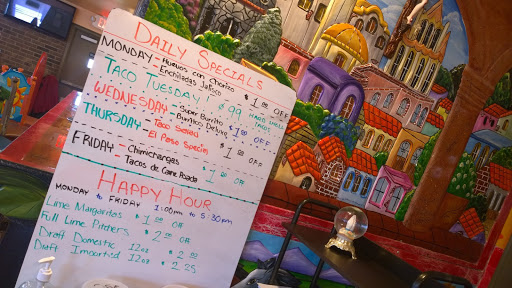 Daily Specials
MONDAY - Huevos con Chorizo
- Enchiladas Jalisco $1.00 OFF
TACO TUESDAY! .99 HARD SHELL TACOS
WEDNESDAY - Super Burrito
- Burritos Deluxe $1.00 OFF
THURSDAY - Taco Salad
- El Paso Special $1.00 OFF
FRIDAY - Chimichangas
- Tacos de Carne Asada $1.00 OFF
HAPPY HOUR
MONDAY to FRIDAY 1:00pm to 5:30pm
Lime Margaritas $1.00 Off
Full Lime Pitchers $2.00 Off
Draft Domestic 12oz $2.00
Draft Imported 12oz $2.25